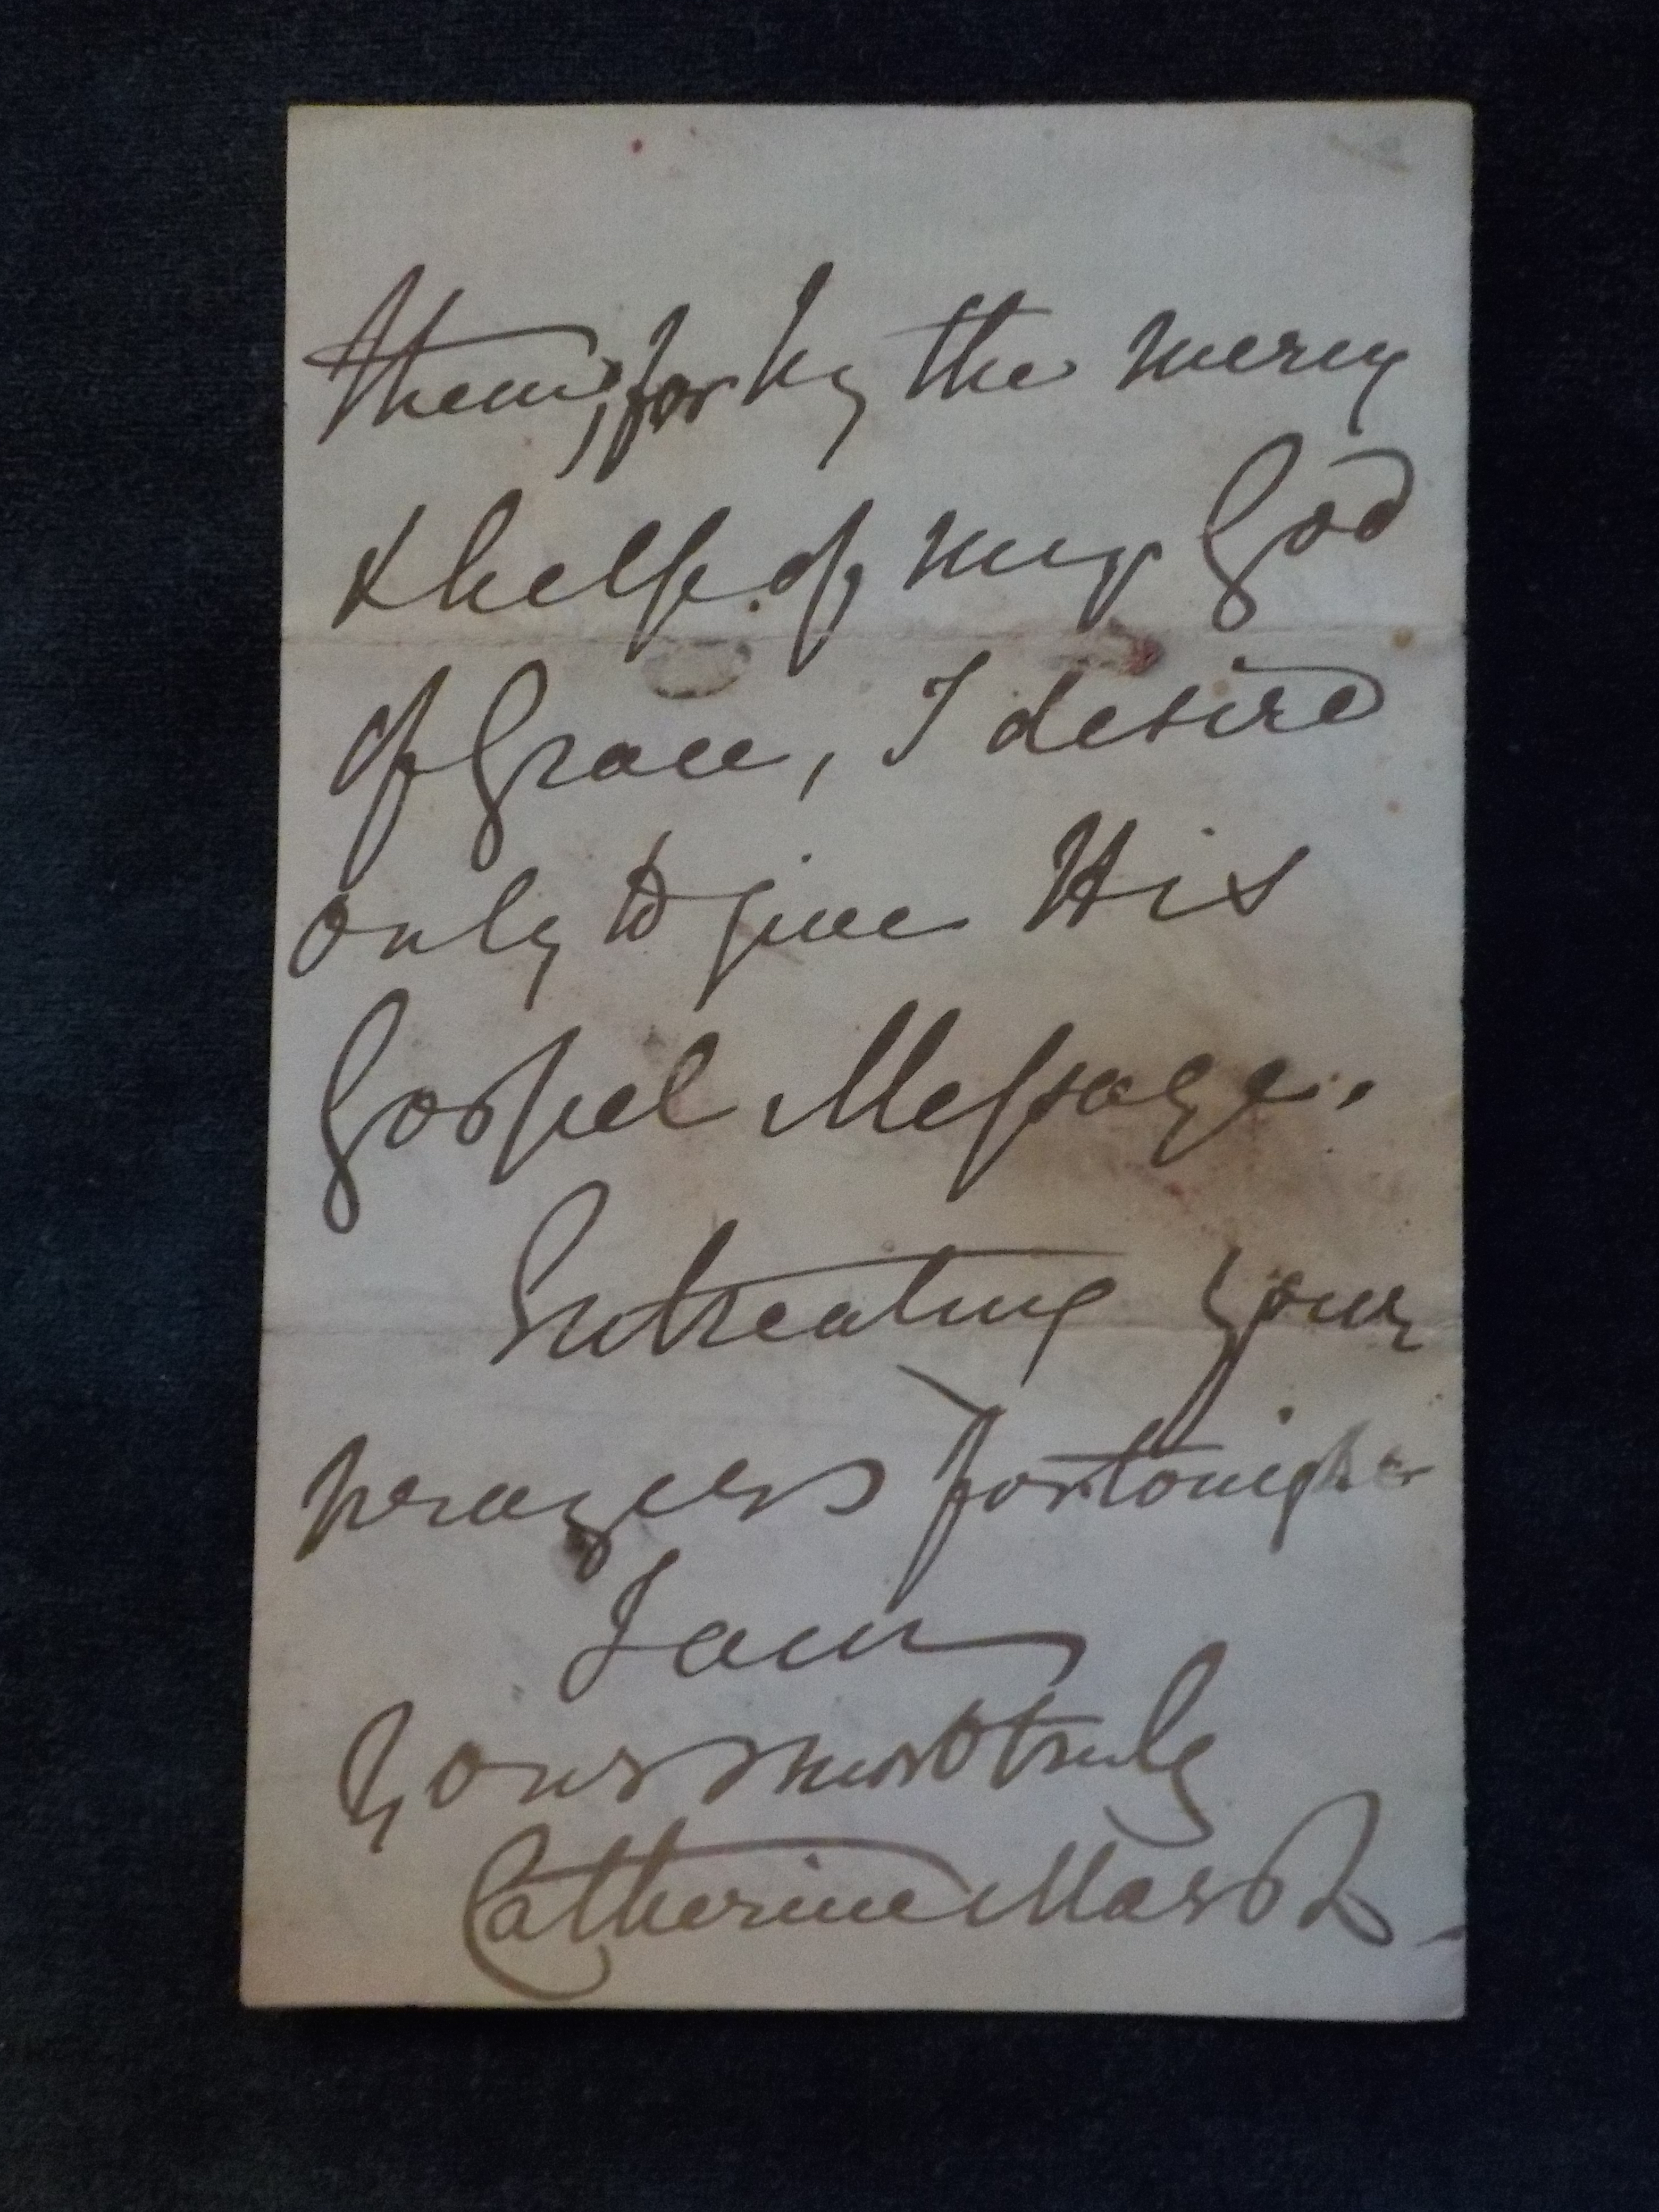 them, for by the mercy
& help of my God
of Grace, I desire
only to give His
Gospel Message.
Entreating your
prayers for tonight
I am
Yours most truly
Catherine Marsh